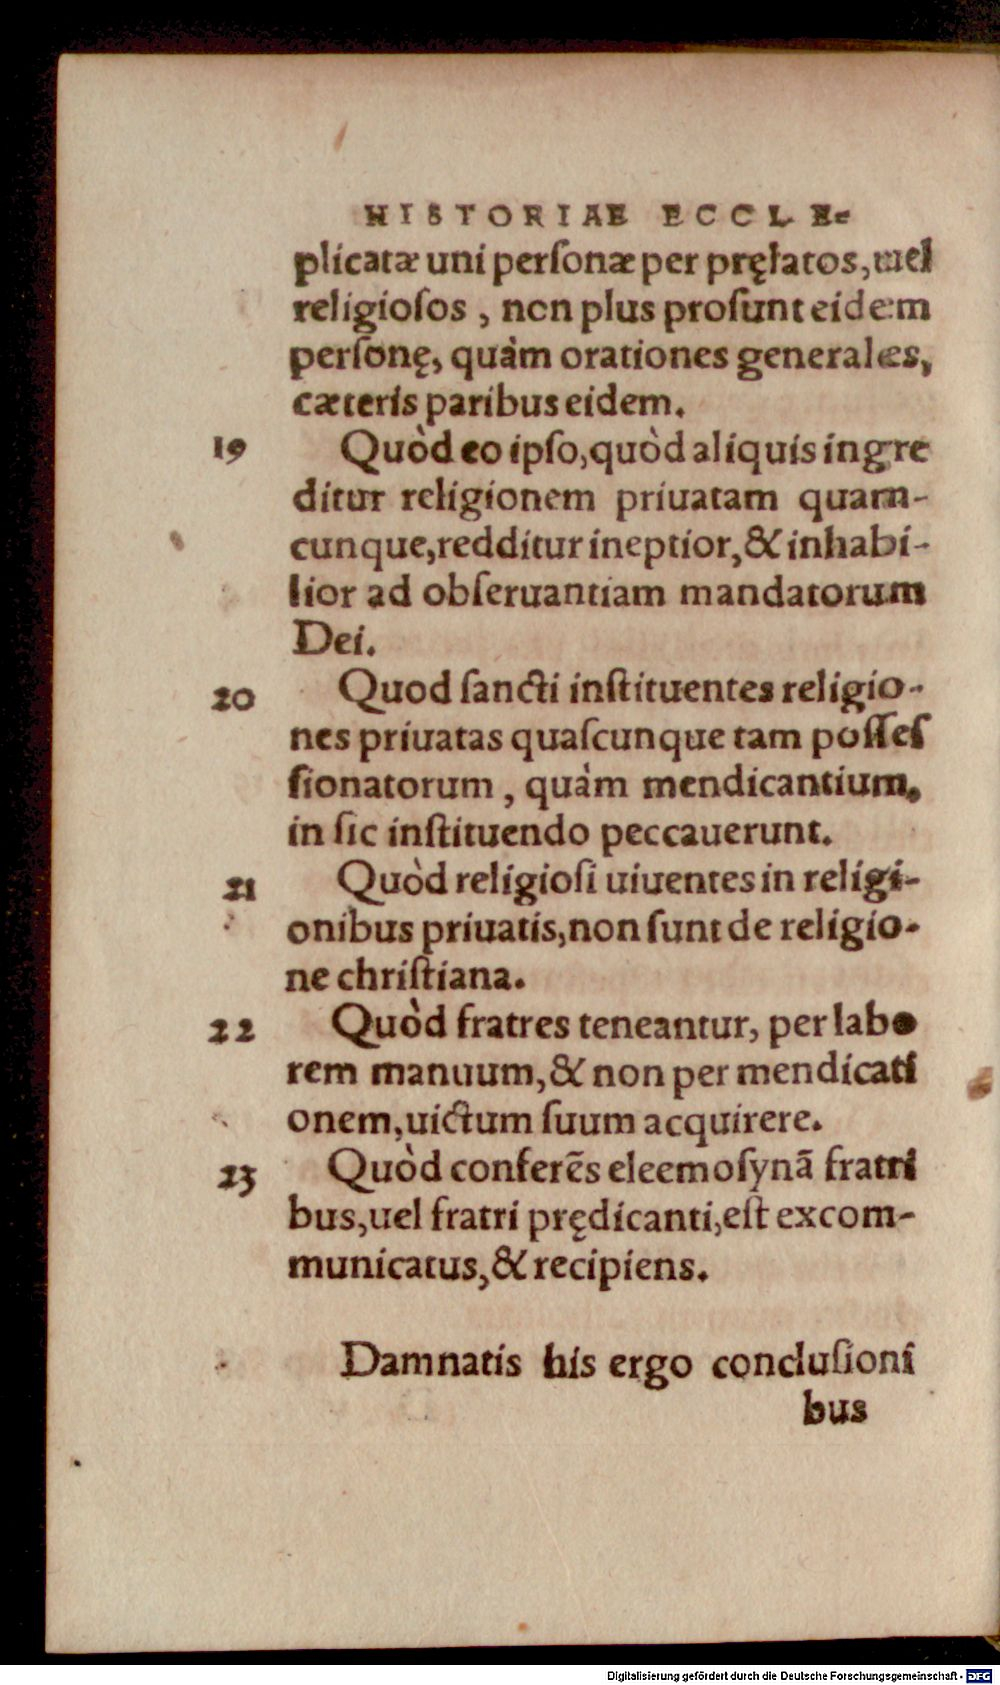 HISTORIAE ECCLE-
plicatæ uni personæ per pręlatos, uel
religiosos, non plus prosunt eidem
personę, quàm orationes generales,
cæteris paribus eidem.
19 Quòd eo ipso, quòd aliquis ingre
ditur religionem priuatam quam-
cunque, redditur ineptior, & inhabi-
lior ad obseruantiam mandatorum
Dei.
20 Quod sancti instituentes religio-
nes priuatas quascunque tam posses
sionatorum, quàm mendicantium,
in sic instituendo peccauerunt.
21 Quòd religiosi uiuentes in religi-
onibus priuatis, non sunt de religio-
ne christiana.
22 Quòd fratres teneantur, per labo
rem manuum, & non per mendicati
onem, uictum suum acquirere.
23 Quòd conferẽs eleemosynã fratri
bus, uel fratri prędicanti, est excom-
municatus, & recipiens.
Damnatis his ergo conclusioni
bus
Digitalisierung gefördert durch die Deutsche Forschungsgemeinschaft - DFG